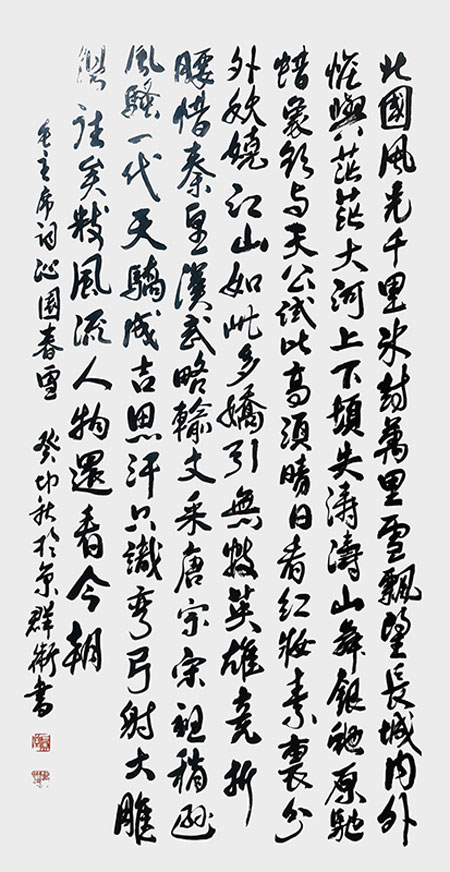 北國風光千里冰封萬里雪飄望長城内外
惟與茫茫大河上下頓失濤濤山舞銀蛇原馳
蜡象欲与天公試比高須晴日看红妝素裹分
外妖嬈江山如此多嬌引無數英雄竞折
腰惜秦皇漢武略輸文采唐宗宋祖稍遜
風騷一代天驕成吉思汗只識彎弓射大雕
俱往矣數風流人物還看今朝
毛主席词沁園春雪 癸卯秋於京群書